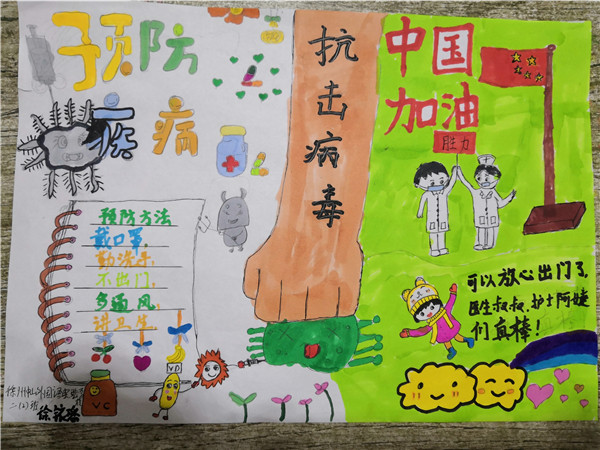 预防
疾病
抗击病毒
中国
加油
胜力
预防方法
戴口罩,
勤洗手,
不出门,
多通风,
讲卫生
VD
VC
二(2)班
可以放心出门了,
医生叔叔、护士阿姨
们真棒!